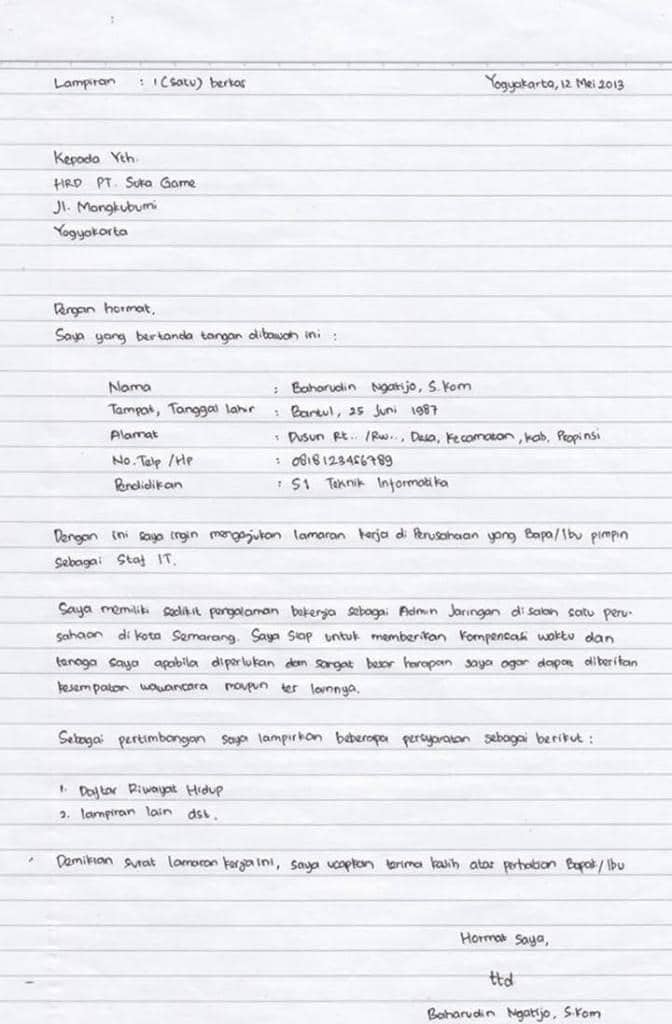 Lampiran : 1 (Satu) berkas Yogyakarta, 12 Mei 2013
Kepada Yth.
HRD PT. Suka Game
Jl. Mangkubumi
Yogyakarta
Dengan hormat,
Saya yang bertanda tangan dibawah ini :
Nama : Baharudin Ngatijo, S.Kom
Tempat, Tanggal lahir : Bantul, 25 Juni 1987
Alamat : Dusun Rt.. /Rw.., Desa, Kecamatan, Kab, Propinsi
No. Telp /Hp : 0818123456789
Pendidikan : S1 Teknik Informatika
Dengan ini saya ingin mengajukan lamaran kerja di Perusahaan yang Bapa/Ibu pimpin
Sebagai Staf IT.
Saya memiliki sedikit pengalaman bekerja sebagai Admin Jaringan di salah satu peru-
sahaan di kota Semarang. Saya Siap untuk memberikan kompensasi waktu dan
tenaga saya apabila diperlukan dan sangat besar harapan saya agar dapat diberikan
kesempatan wawancara maupun tes lainnya.
Sebagai pertimbangan saya lampirkan beberapa persyaratan sebagai berikut :
1. Daftar Riwayat Hidup
2. lampiran lain dst.
Demikian surat lamaran kerja ini, saya ucapkan terima kasih atas perhatian Bapak/Ibu
Hormat Saya,
ttd
Baharudin Ngatijo, S.Kom